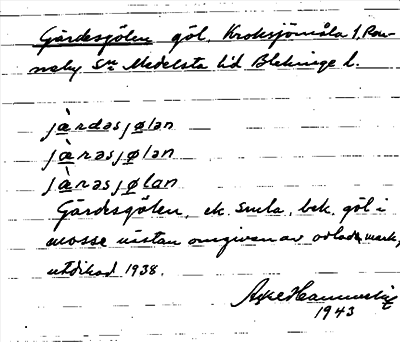 Gärdesgölen göl, Kroksjömåla 1, Ron-
neby Sn Medelsta hd Blekinge l.
jà̱rdəsjø̱lən
jà̱rəsjø̱lən
jà̱rəsjø̱lan
Gärdesgölen, ek. Smla, bek. göl i
mosse nästan omgiven av odlad mark,
utdikad 1938.
1943